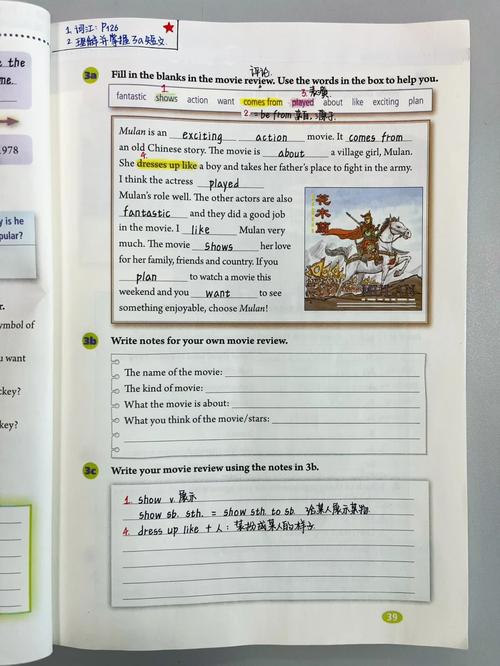 1. 词汇: P126
2. 理解并掌握3a短文
e the
me.
1978
y is he
pular?
r.
ymbol of
u want
ckey?
key?
评论
3a Fill in the blanks in the movie review. Use the words in the box to help you.
1. 3. 表演
fantastic shows action want comes from played about like exciting plan
2. = be from 来自,源于
Mulan is an exciting action movie. It comes from
an old Chinese story. The movie is about a village girl, Mulan.
4.
She dresses up like a boy and takes her father's place to fight in the army.
I think the actress played
Mulan's role well. The other actors are also
fantastic and they did a good job
in the movie. I like Mulan very
much. The movie shows her love
for her family, friends and country. If you
plan to watch a movie this
weekend and you want to see
something enjoyable, choose Mulan!
花木蘭
3b Write notes for your own movie review.
The name of the movie:
The kind of movie:
What the movie is about:
What you think of the movie/stars:
3c Write your movie review using the notes in 3b.
1. show v. 展示
show sb. sth. = show sth. to sb. 给某人展示某物
4. dress up like + 人: 装扮成某人的样子
39